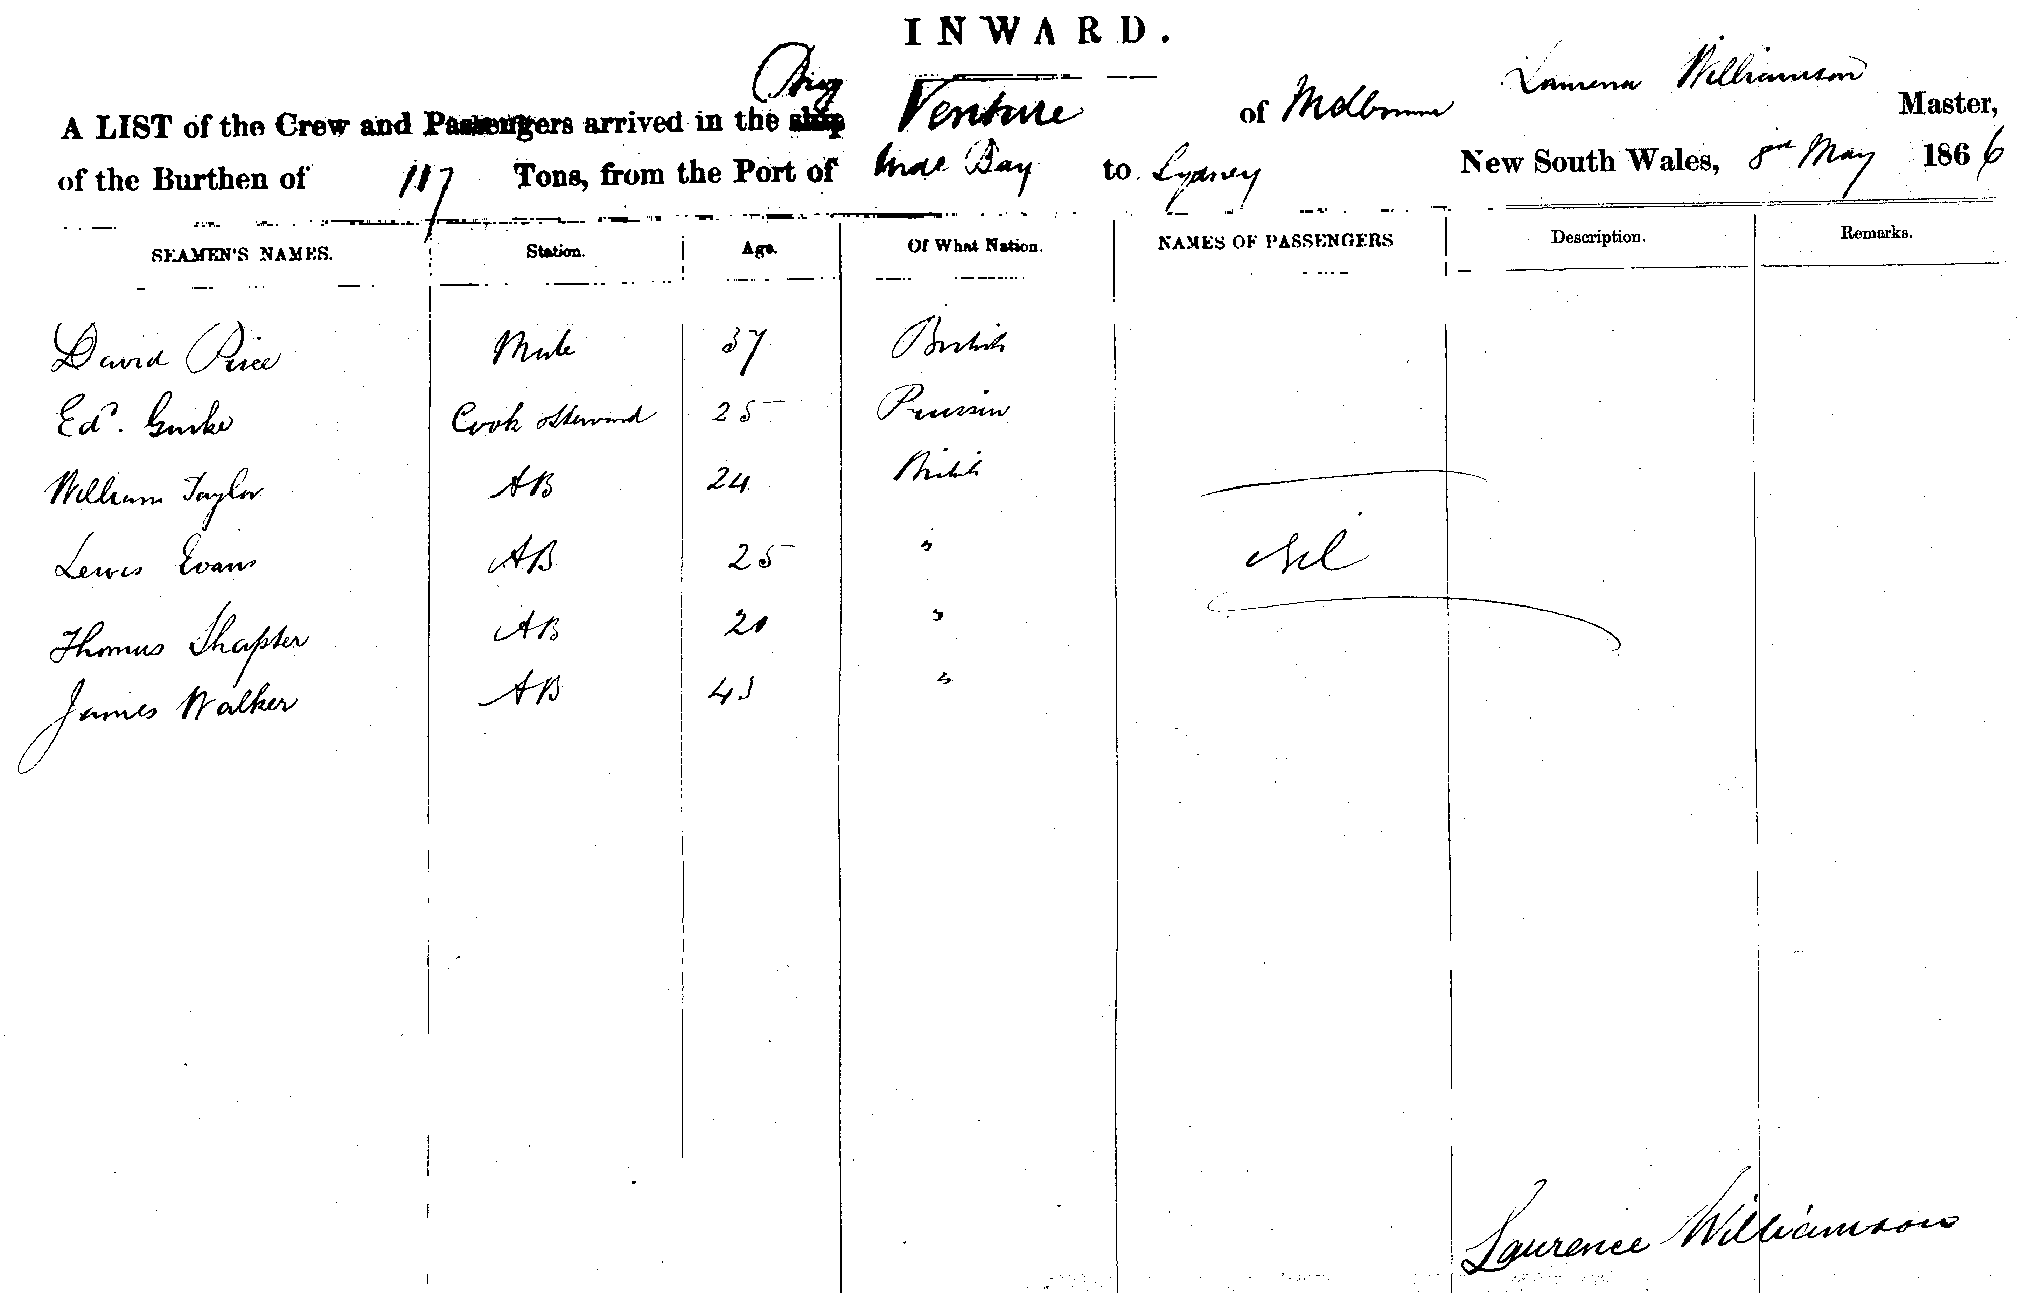 INWARD.
A LIST of the Crew and Passengers arrived in the ship Brig Venture of Melbourne Laurence Williamson Master,
of the Burthen of 117 Tons, from the Port of Bay to Sydney New South Wales, 8th May 1866
SEAMEN'S NAMES. Station. Age. Of What Nation. NAMES OF PASSENGERS Description. Remarks.
David Price Mate 37 British
Ed. Cook & Steward 25 Prussian
William Taylor AB 24 British
Lewis Evans AB 25 " Nil
Thomas Shapter AB 20 "
James Walker AB 43 "
Laurence Williamson